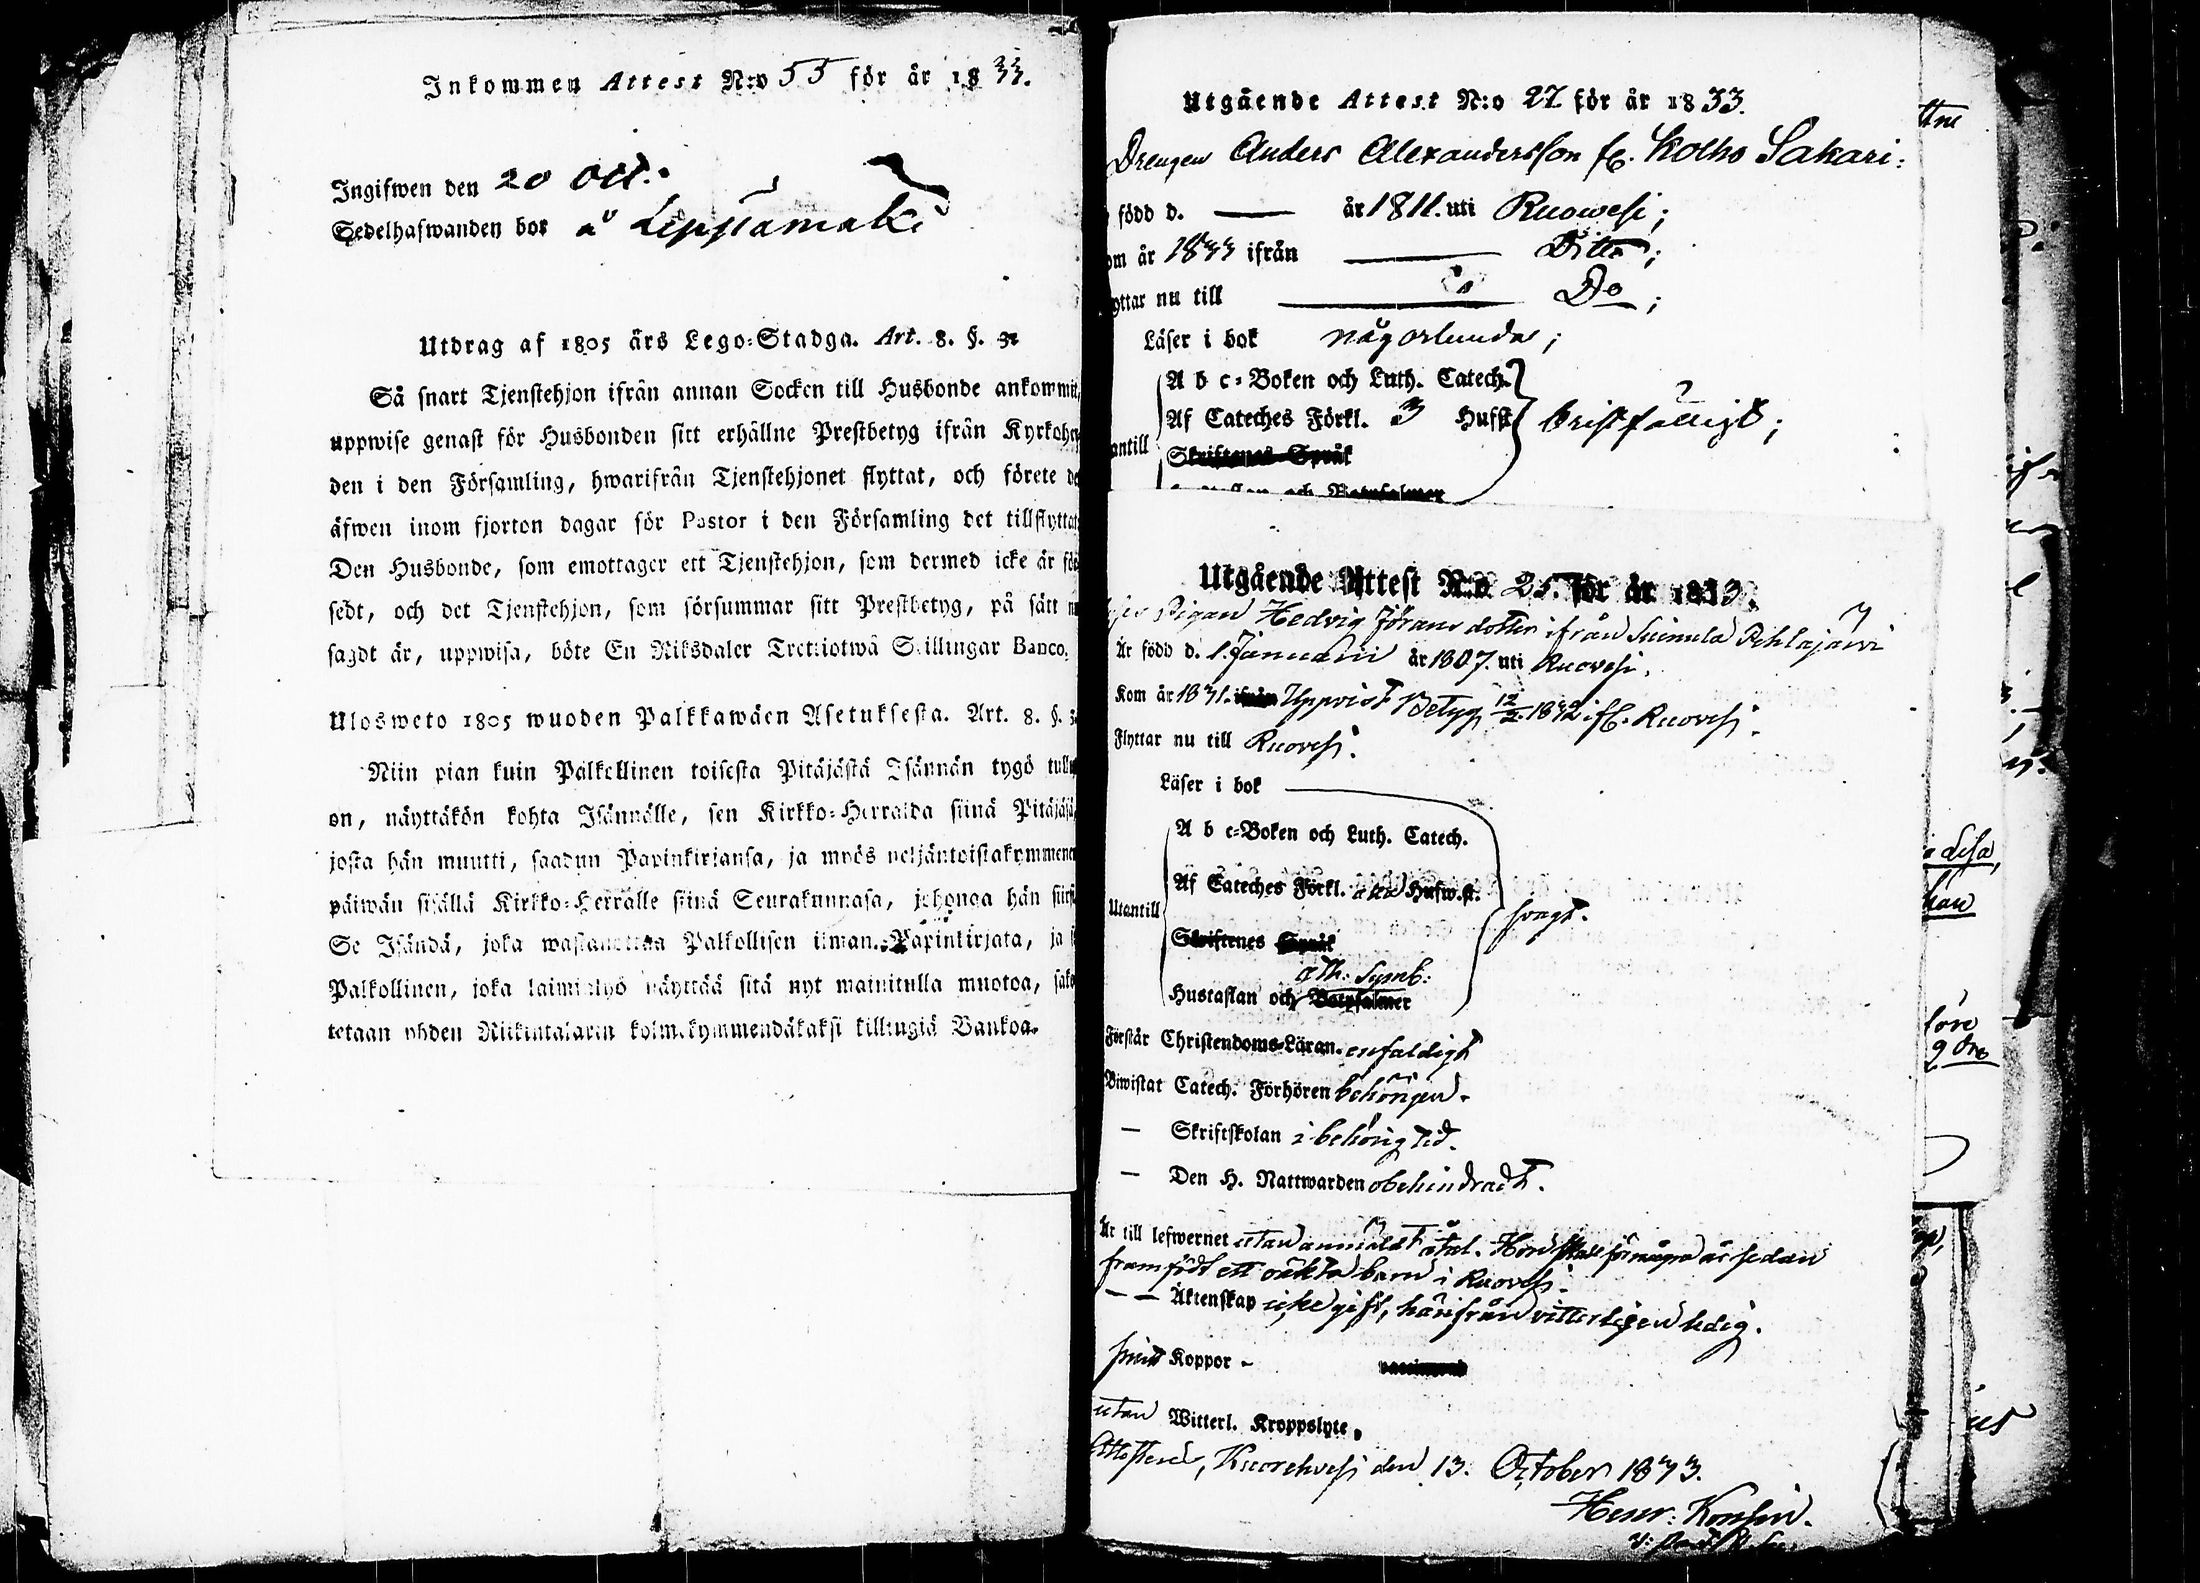 Inkommen Attest N:o 55 för år 1833.
Ingifwen den 20 Oct.
Sedelhafwanden bor å Leppämäki
Utdrag af 1805 års Lego-Stadga. Art. 8. §. 3.
Så snart Tjenstehjon ifrån annan Socken till Husbonde ankommit,
uppwise genast för Husbonden sitt erhållne Prestbetyg ifrån Kyrkoher
den i den Församling, hwarifrån Tjenstehjonet flyttat, och förete de
äfwen inom fjorton dagar för Pastor i den Församling det tillflyttat
Den Husbonde, som emottager ett Tjenstehjon, som dermed icke är för
sedt, och det Tjenstehjon, som försummar sitt Prestbetyg, på sätt nu
sagdt är, uppwisa, böte En Riksdaler Trettiotwå Skillingar Banco.
Ulosweto 1805 wuoden Palkkawäen Asetuksesta. Art. 8. §. 3.
Niin pian kuin Palkollinen toisesta Pitäjästä Isännän tygö tullut
on, näyttäkön kohta Isännälle, sen Kirkko-Herralda siinä Pitäjäsä,
josta hän muutti, saadun Papinkirjansa, ja myös neljäntoistakymmenen
päiwän sisällä Kirkko-Herralle siinä Seurakunnasa, johonga hän siirsi
Se Isändä, joka wastanottaa Palkollisen ilman Papinkirjata, ja
Palkollinen, joka laiminlyö näyttää sitä nyt mainitulla muotoa, sako
tetaan yhden Riikintalarin kolmekymmendäkaksi killingiä Bankoa.
Utgående Attest N:o 27 för år 1833.
Drengen Anders Alexandersson fr. Kolho Sakari:
född d. — år 1811. uti Ruowesi;
om år 1833 ifrån — Ditto;
yttar nu till — Do;
Läser i bok någorlunda;
A b c-Boken och Luth. Catech.
Af Cateches Förkl. 3 Hufst bristfälligt;
antill
Skriftenes Språk
Utgående Attest N:o 25. för år 1833.
Pigan Hedvig Jöransdotter ifrån Suinula Pehlajärvi
Är född d. 1. Januarii år 1807. uti Ruovesi.
Kom år 1831. ifrån Uppvist Betyg 12/2. 1832 ifr. Ruovesi.
Flyttar nu till Ruovesi.
Läser i bok
A b c-Boken och Luth. Catech.
Af Cateches Förkl. Hufw.st.
Utantill svagt.
Skriftenes Språk
Ath: Symb:
Hustaflan och Botpsalmer
Förstår Christendoms-Läran. enfaldigt
Biwistat Catech. Förhören behörigen.
— Skriftskolan i behörig tid.
— Den H. Nattwarden obehindradt.
Är till lefwernet utan anmäldt åtal. Hon skall för några år sedan
framfödt ett oäkta barn i Ruovesi.
— — Äktenskap icke gift, härifrån vitterligen ledig.
Koppor –
utan Witterl. Kroppslyte.
Attesterar, Kuorehvesi den 13. October 1833.
Henr: Konsin.